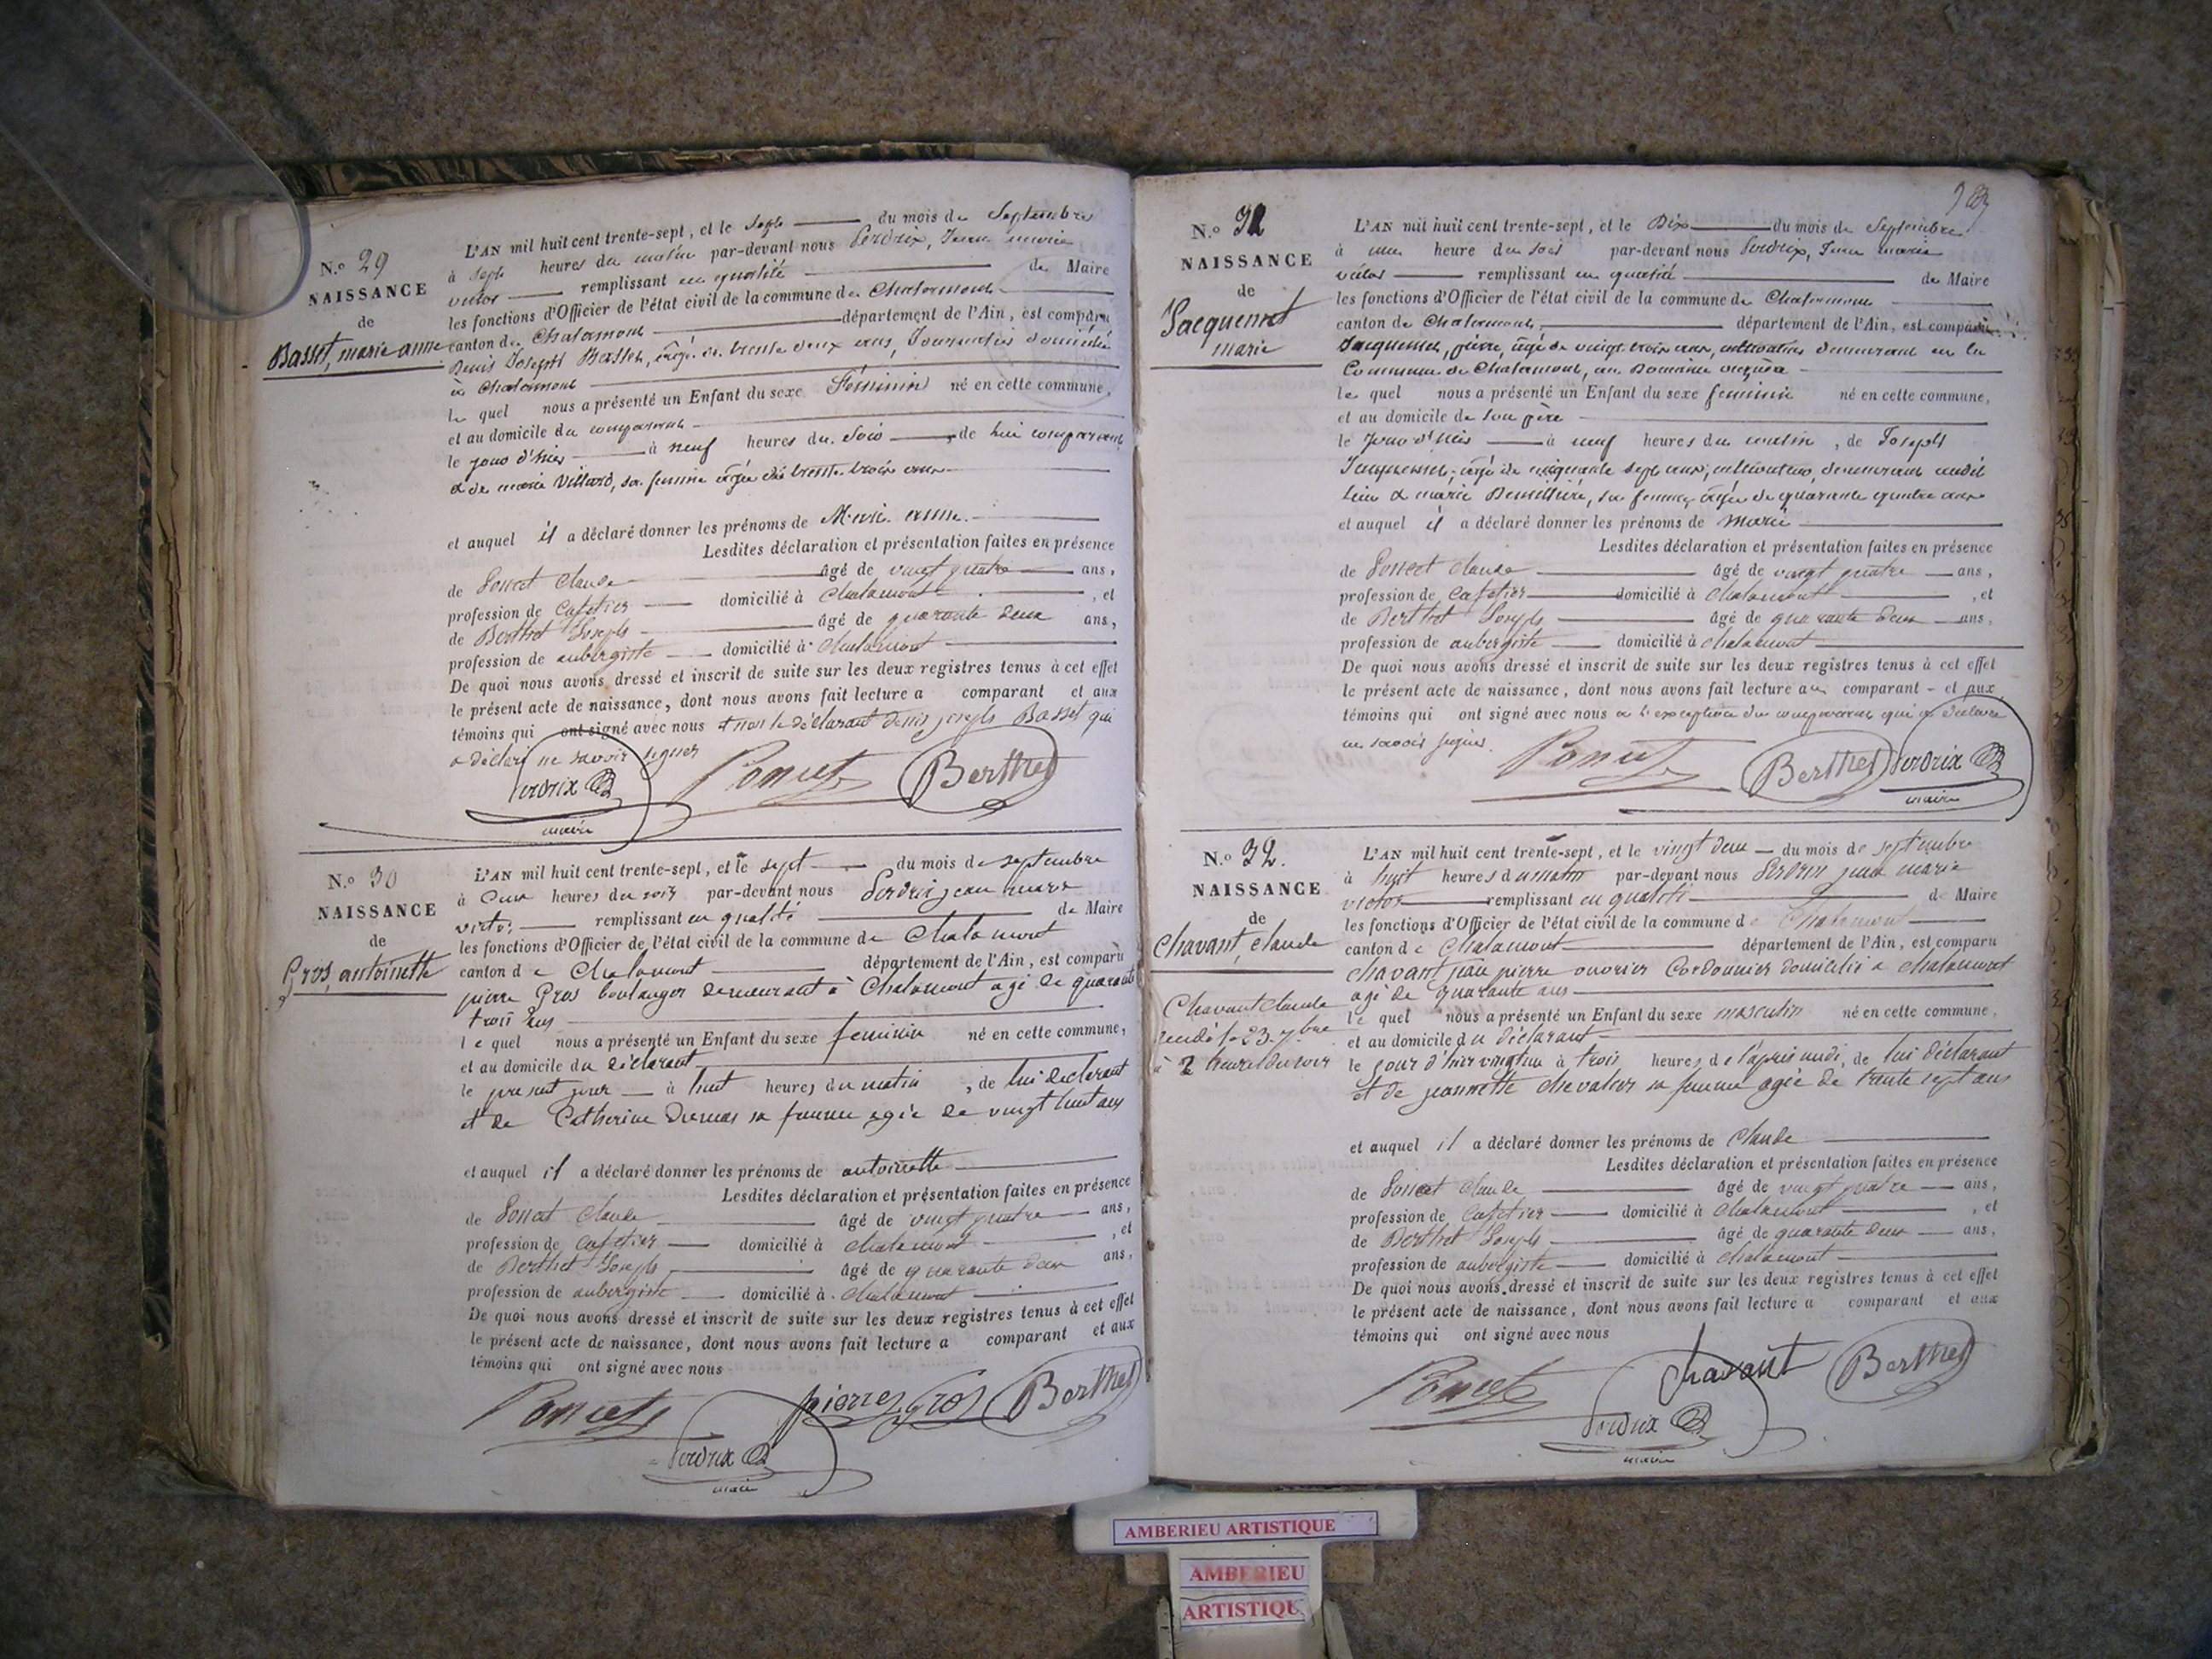 N.o 29
NAISSANCE
de
Basset, marie anne
L'AN mil huit cent trente-sept, et le sept du mois de Septembre
à sept heures du matin par-devant nous Perdrix, Jean marie
victor remplissant en qualité de Maire
les fonctions d'Officier de l'état civil de la commune de Chalamont
canton de Chalamont département de l'Ain, est comparu
Denis Joseph Basset, âgé de trente deux ans, Journalier domicilié
à Chalamont
le quel nous a présenté un Enfant du sexe Féminin né en cette commune,
et au domicile du comparant
le jour d'hier à neuf heures du Soir, de lui comparant
& de marie Villard, sa femme âgée de trente trois ans
et auquel il a déclaré donner les prénoms de Marie anne.
Lesdites déclaration et présentation faites en présence
de Poncet Claude âgé de vingt quatre ans,
profession de Cafetier domicilié à Chalamont, et
de Berthet Joseph âgé de quarante deux ans,
profession de aubergiste domicilié à Chalamont
De quoi nous avons dressé et inscrit de suite sur les deux registres tenus à cet effet
le présent acte de naissance, dont nous avons fait lecture a comparant et aux
témoins qui ont signé avec nous & non le déclarant denis joseph Basset qui
a déclaré ne savoir signer
Perdrix Poncet Berthet
maire
N.o 30
NAISSANCE
de
Gros, antoinette
L'AN mil huit cent trente-sept, et le sept du mois de septembre
à deux heures du soir par-devant nous Perdrix jean marie
victor remplissant en qualité de Maire
les fonctions d'Officier de l'état civil de la commune de Chalamont
canton de Chalamont département de l'Ain, est comparu
pierre Gros boulanger demeurant à Chalamont agé de quarante
trois ans
le quel nous a présenté un Enfant du sexe feminin né en cette commune,
et au domicile du déclarant
le présent jour à huit heures du matin, de lui declarant
et de Catherine Dumas sa femme agée de vingt huit ans
et auquel il a déclaré donner les prénoms de antoinette
Lesdites déclaration et présentation faites en présence
de Poncet Claude âgé de vingt quatre ans,
profession de Cafetier domicilié à chalamont, et
de Berthet Joseph âgé de quarante deux ans,
profession de aubergiste domicilié à chalamont
De quoi nous avons dressé et inscrit de suite sur les deux registres tenus à cet effet
le présent acte de naissance, dont nous avons fait lecture a comparant et aux
témoins qui ont signé avec nous
Poncet pierre gros Berthet
Perdrix
maire
N.o 31
NAISSANCE
de
Jacquemet
marie
L'AN mil huit cent trente-sept, et le Dix du mois de Septembre
à une heure du soir par-devant nous Perdrix, Jean marie
victor remplissant en qualité de Maire
les fonctions d'Officier de l'état civil de la commune de Chalamont
canton de Chalamont, département de l'Ain, est comparu
Jacquemet, pierre, âgé de vingt trois ans, cultivateur demeurant en la
Commune de Chalamont, au Domaine
le quel nous a présenté un Enfant du sexe feminin né en cette commune,
et au domicile de son père
le jour d'hier à neuf heures du matin, de Joseph
Jacquemet, âgé de cinquante sept ans, cultivateur, demeurant audit
lieu & marie sa femme, âgée de quarante quatre ans
et auquel il a déclaré donner les prénoms de marie
Lesdites déclaration et présentation faites en présence
de Poncet Claude âgé de vingt quatre ans,
profession de Cafetier domicilié à Chalamont, et
de Berthet Joseph âgé de quarante deux ans,
profession de aubergiste domicilié à chalamont
De quoi nous avons dressé et inscrit de suite sur les deux registres tenus à cet effet
le présent acte de naissance, dont nous avons fait lecture au comparant et aux
témoins qui ont signé avec nous à l'exception du comparant qui a déclaré
ne savoir signer.
Poncet Berthet Perdrix
maire
N.o 32.
NAISSANCE
de
Chavant, claude
L'AN mil huit cent trente-sept, et le vingt deux du mois de septembre
à huit heures du matin par-devant nous Perdrix jean marie
victor remplissant en qualité de Maire
les fonctions d'Officier de l'état civil de la commune de Chalamont
canton de Chalamont département de l'Ain, est comparu
chavant jean pierre ouvrier Cordonnier domicilié a chalamont
agé de quarante ans
le quel nous a présenté un Enfant du sexe masculin né en cette commune,
et au domicile du déclarant
le jour d'hier vingt un à trois heures de l'après midi, de lui déclarant
et de jeannette chevalier sa femme agée de trente sept ans
Chavant claude
décédé le 23 7bre
à 2 heures du soir
et auquel il a déclaré donner les prénoms de claude
Lesdites déclaration et présentation faites en présence
de Poncet Claude âgé de vingt quatre ans,
profession de Cafetier domicilié à chalamont, et
de Berthet Joseph âgé de quarante deux ans,
profession de aubergiste domicilié à chalamont
De quoi nous avons dressé et inscrit de suite sur les deux registres tenus à cet effet
le présent acte de naissance, dont nous avons fait lecture a comparant et aux
témoins qui ont signé avec nous
Poncet chavant Berthet
Perdrix
maire
AMBERIEU ARTISTIQUE
AMBERIEU
ARTISTIQUE